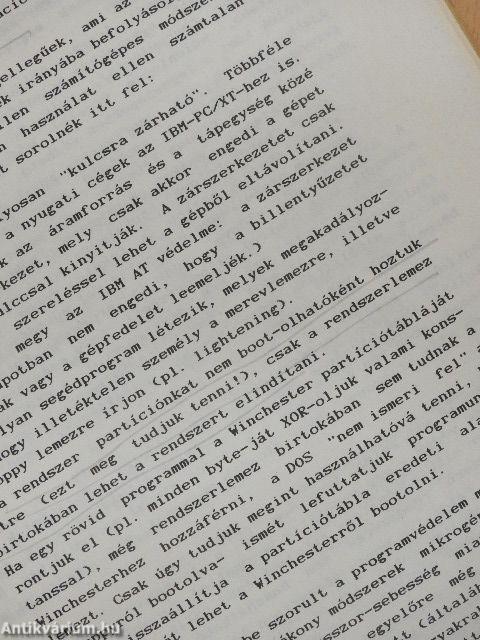 ellegűek, ami az
ek irányába befolyásol
llen számítógépes módsze
n használat ellen számtalan
t sorolnék itt fel:
lyosan "kulcsra zárható". Többféle
a nyugati cégek az IBM-PC/XT-hez is.
k az áramforrás és a tápegység közé
kezet, mely csak akkor engedi a gépet
lccsal kinyitják. A zárszerkezetet csak
szereléssel lehet a gépből eltávolítani.
megy az IBM AT védelme: a zárszerkezet
potban nem engedi, hogy a billentyűzetet
ak vagy a gépfedelet leemeljék.)
lyan segédprogram létezik, melyek megakadályoz-
hogy illetéktelen személy a merevlemezre, illetve
oppy lemezre írjon (pl. lightening).
a rendszer partíciónkat nem boot-olhatóként hoztuk
tre (ezt meg tudjuk tenni!), csak a rendszerlemez
birtokában lehet a rendszert elindítani.
Ha egy rövid programmal a Winchester partíciótábláját
rontjuk el (pl. minden byte-ját XOR-oljuk valami kons-
tanssal), még rendszerlemez birtokában sem tudnak a
Winchesterhez hozzáférni, a DOS "nem ismeri fel" a
zt. Csak úgy tudjuk megint használhatóvá tenni,
ról bootolva ismét lefuttatjuk programun
isszaállítja a partíciótábla eredeti ala
t lehet a Winchesterről bootolni.
be szorult a programvédelem m
ékony módszerek mikrogé
sszor-sebesség mia
egyelőre még
(általá
yakra
Antikvárium.hu